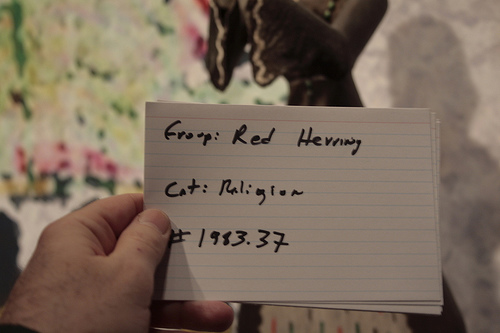 Group: Red Herring
Cat: Religion
# 1983.37